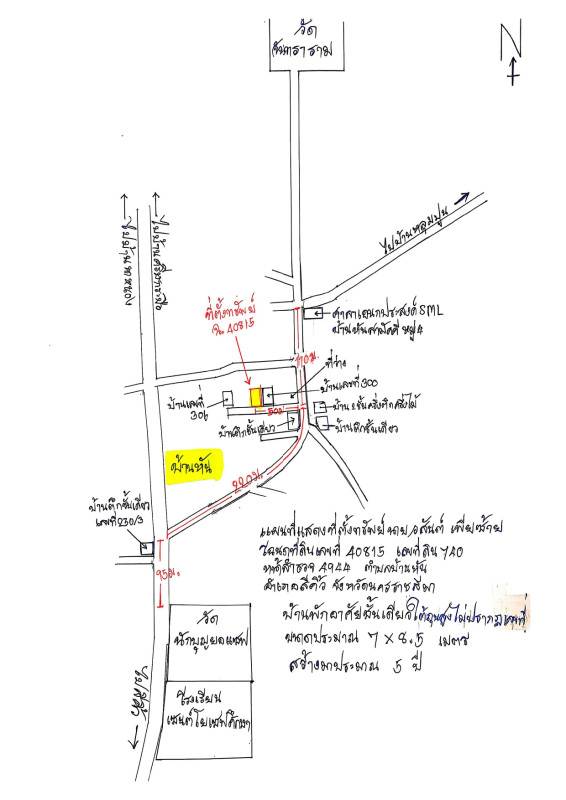 วัด
จันทราราม
N
ไปบ้านหลุมปูน
ศาลาเอนกประสงค์ SML
บ้านหันสามัคคี หมู่ 4
ที่ตั้งทรัพย์
ฉ. 40815
110 ม.
ที่ว่าง
บ้านเลขที่ 300
บ้านเลขที่
306
50ม
บ้าน 2 ชั้นครึ่งตึกครึ่งไม้
บ้านตึกชั้นเดียว
บ้านตึกชั้นเดียว
บ้านหัน
220 ม.
บ้านตึกชั้นเดียว
เลขที่ 230/3
95 ม.
แผนที่แสดงที่ตั้งทรัพย์
โฉนดที่ดินเลขที่ 40815 เลขที่ดิน 740
หน้าสำรวจ 4944 ตำบลบ้านหัน
อำเภอสีคิ้ว จังหวัดนครราชสีมา
บ้านพักอาศัยชั้นเดียวใต้ถุนสูงไม่ปรากฏเลขที่
ขนาดประมาณ 7 × 8.5 เมตร
สร้างมาประมาณ 5 ปี
วัด
นักบุญยอแซฟ
โรงเรียน
เซนต์โยเซฟศึกษา